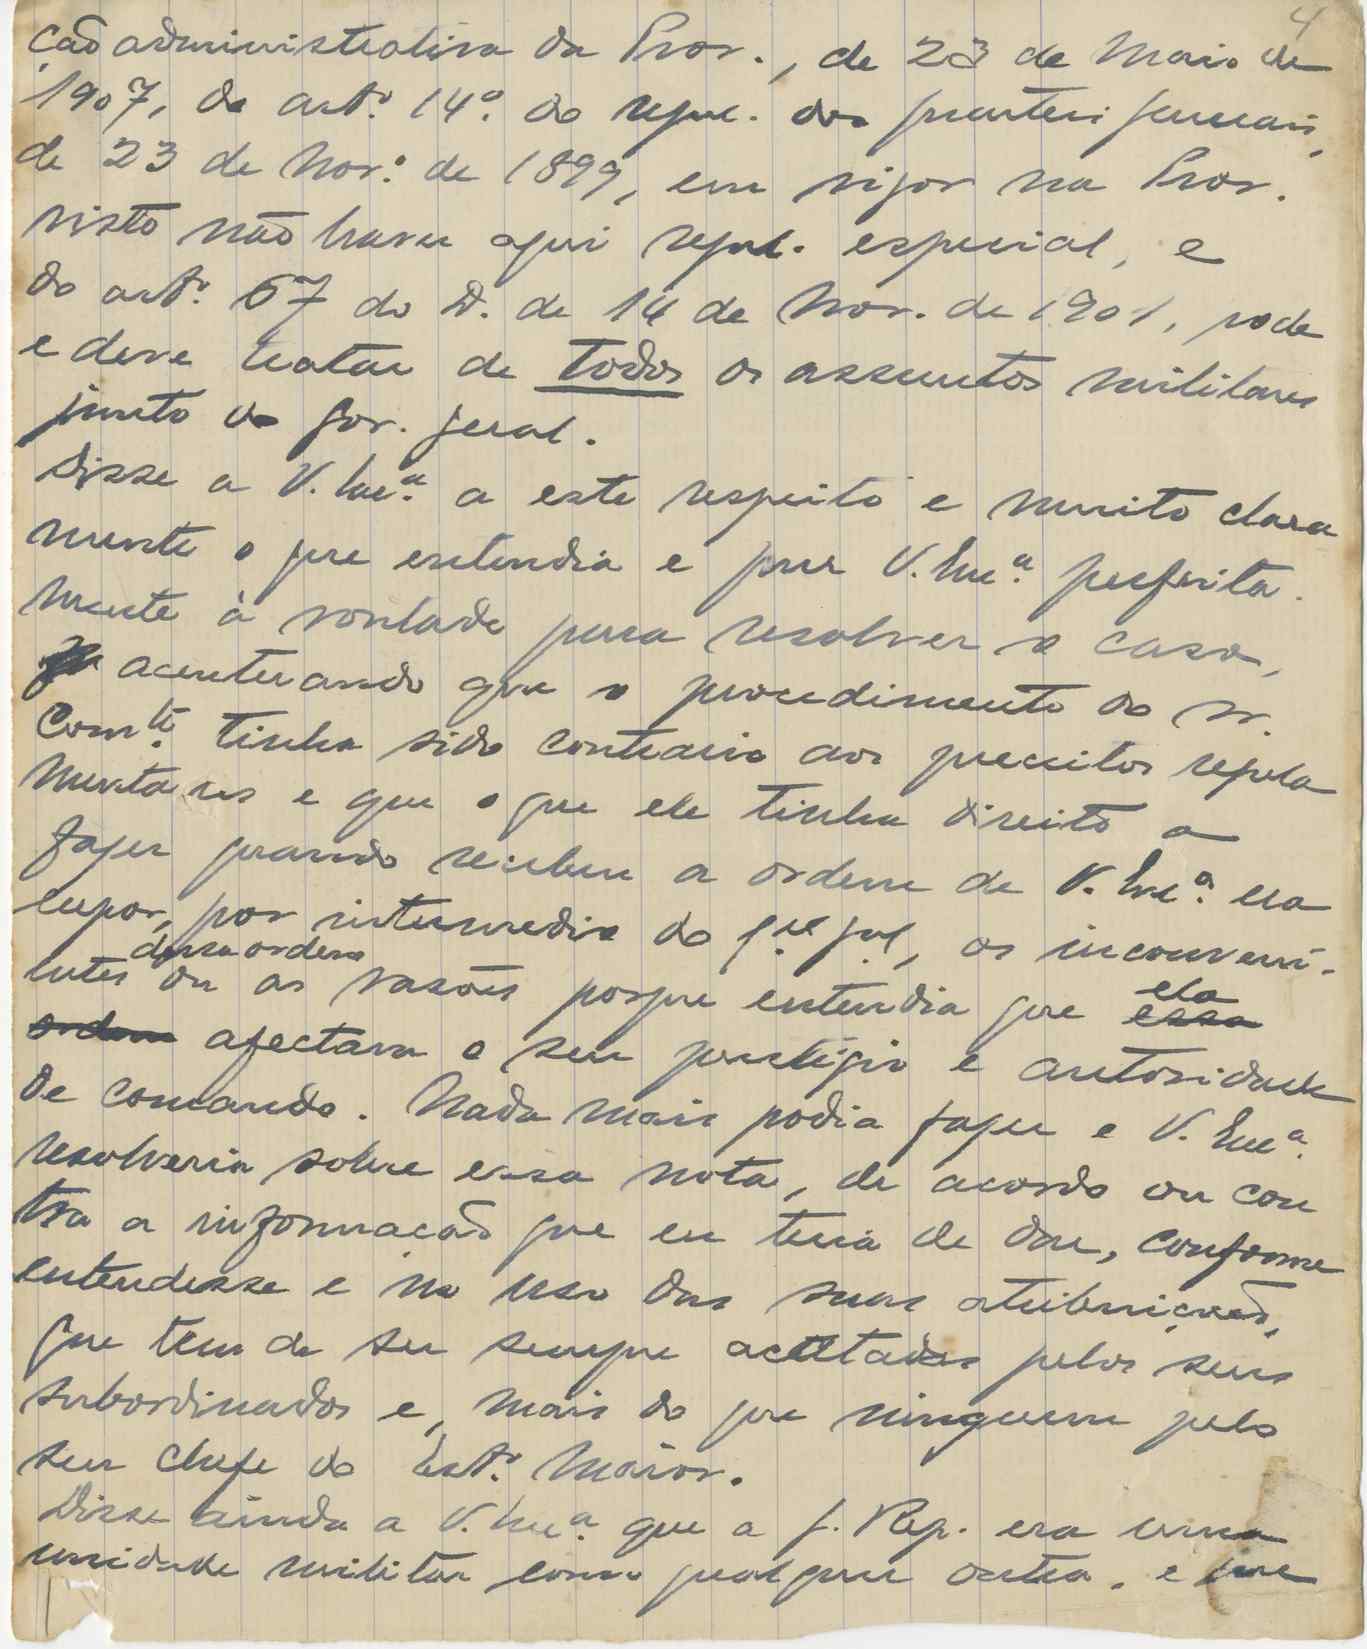 4
ção administrativa da Prov., de 23 de Maio de
1907, do artº. 14º. do regul. dos quarteis generais,
de 23 de Novº. de 1899, em vigor na Prov.
visto não haver aqui regul. especial, e
do artº. 67 do D. de 14 de Nov. de 1901, pode
e deve tratar de todos os assuntos militares
junto do gov. geral.
Disse a V. Exª. a este respeito e muito clara
mente o que entendia e puz V. Exª. perfeita-
mente à vontade para resolver o caso,
acentuando que o procedimento do sr.
Comte. tinha sido contrario aos preceitos regula
mentares e que o que ele tinha direito a
fazer quando recebeu a ordem de V. Exª. era
expor, por intermedio do qel gal, os inconveni-
entes dessa ordem ou as rasões porque entendia que ~~essa~~ ela
~~ordem~~ afectava o seu prestigio e autoridade
de comando. Nada mais podia fazer e V. Exª.
resolveria sobre essa nota, de acordo ou con
tra a informação que eu teria de dar, conforme
entendesse e no uso das suas atribuições,
que tem de ser sempre acatadas pelos seus
subordinados e, mais do que ninguem pelo
seu chefe do Estº. Maior.
Disse ainda a V. Exª. que a g. Rep. era uma
unidade militar como qualquer outra, e que